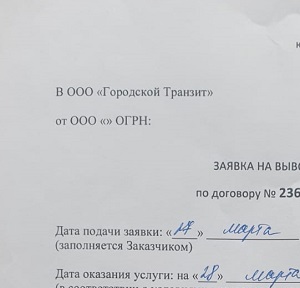 В ООО «Городской Транзит»
от ООО «» ОГРН:
ЗАЯВКА НА ВЫВО
по договору № 236
Дата подачи заявки: «27» марта
(заполняется Заказчиком)
Дата оказания услуги: на «28» марта